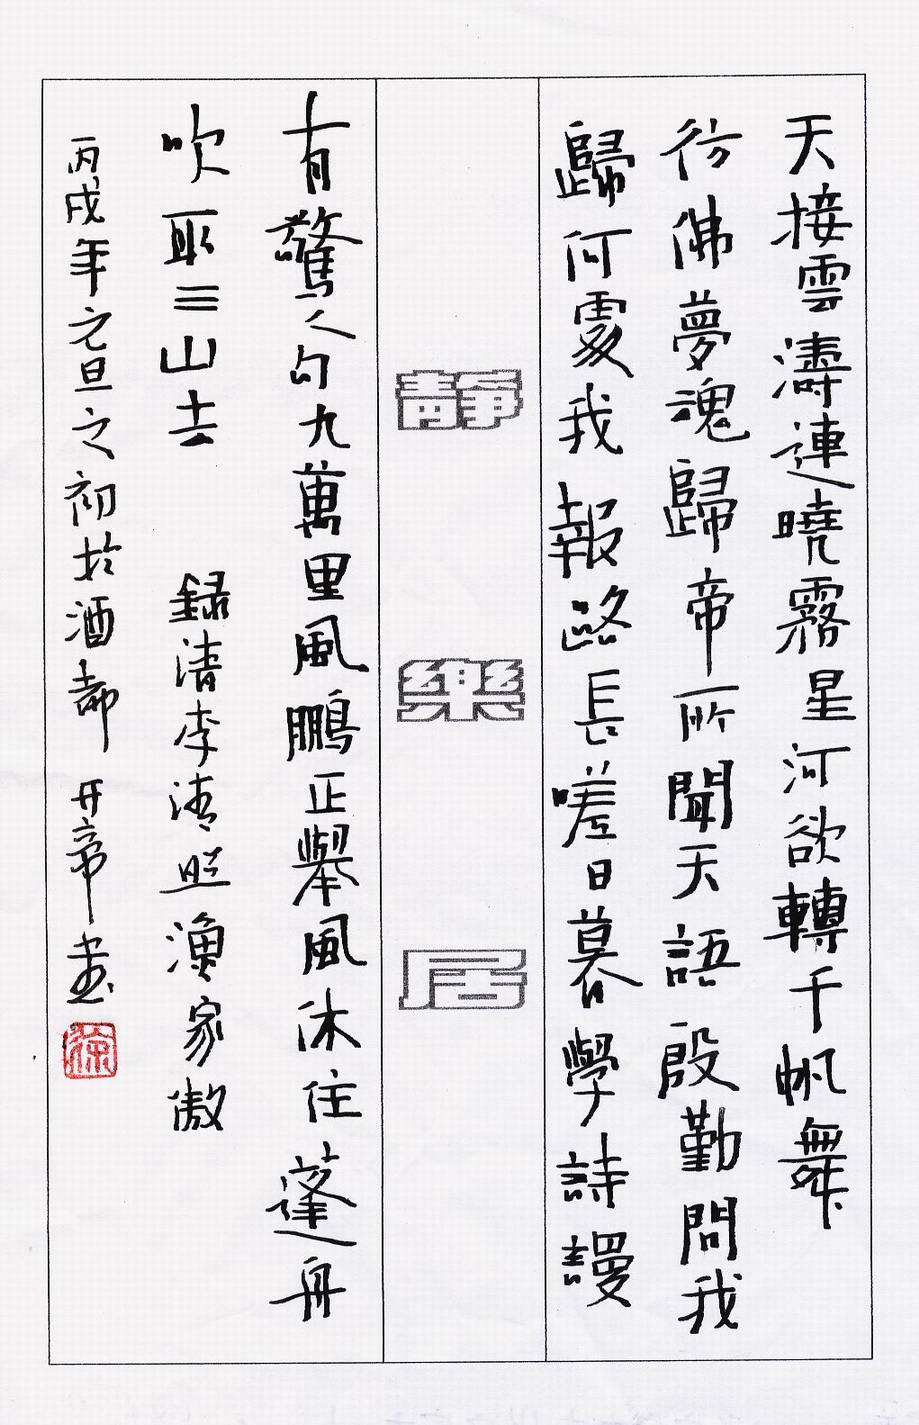 天接雲濤連曉霧星河欲轉千帆舞
彷佛夢魂歸帝所聞天語殷勤問我
歸何處我報路長嗟日暮學詩謾
靜樂居
有驚人句九萬里風鵬正舉風沐住蓬舟
吹取三山去 録清李清照漁家傲
丙戌年元旦之初於酒都 开帝畫